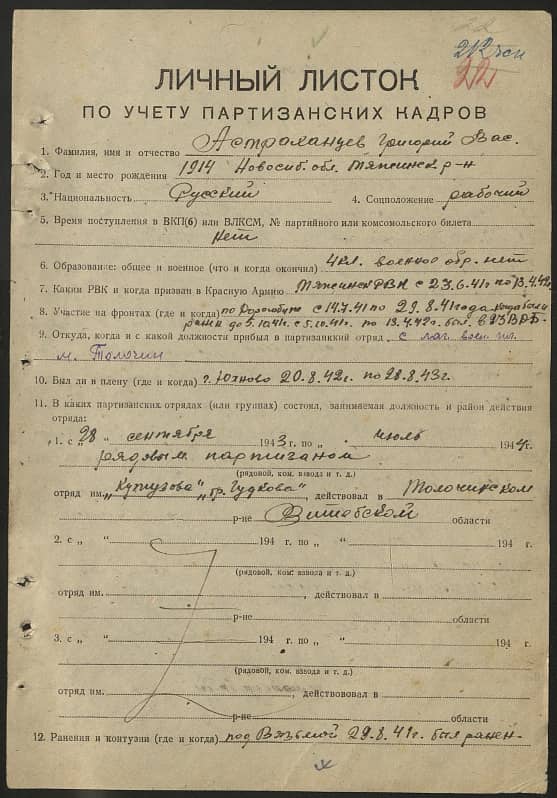 212
22
ЛИЧНЫЙ ЛИСТОК
ПО УЧЕТУ ПАРТИЗАНСКИХ КАДРОВ
1. Фамилия, имя и отчество Астраханцев Григорий Вас.
2. Год и место рождения 1914 Новосиб. обл. Тяжинск р-н
3. Национальность Русский 4. Соцположение рабочий
5. Время поступления в ВКП(б) или ВЛКСМ, № партийного или комсомольского билета
Нет
6. Образование: общее и военное (что и когда окончил) 4кл. военное обр. нет
7. Каким РВК и когда призван в Красную Армию Тяжинск РВК с 23.6.41г по 13.4.42г
8. Участие на фронтах (где и когда) по Дорогобуж с 14.7.41 по 29.8.41 года когда был
ранен до 5.10.41 с 5.10.41г. по 13.4.42 был в 23 ВДБ
9. Откуда, когда и с какой должности прибыл в партизанский отряд с лаг. воен. пл.
м. Толочин
10. Был ли в плену (где и когда) г. Юхново 20.8.42г. по 28.8.43г.
11. В каких партизанских отрядах (или группах) состоял, занимаемая должность и район действия
отряда:
1. с „28 " сентября 1943 г. по „ " июль 1944 г.
рядовым партизаном
(рядовой, ком. взвода и т. д.)
отряд им. „Кутузова" „гр. Гудкова", действовал в Толочинском
р-не Витебской области
2. с „ " 194 г. по „ " 194 г.
(рядовой, ком. взвода и т. д.)
отряд им. , действовал в
р-не области
3. с „ " 194 г. по „ " 194 г.
(рядовой, ком. взвода и т. д.)
отряд им. , действововал в
р-не области
12. Ранения и контузии (где и когда) под Вязьмой 29.8.41г. был ранен.